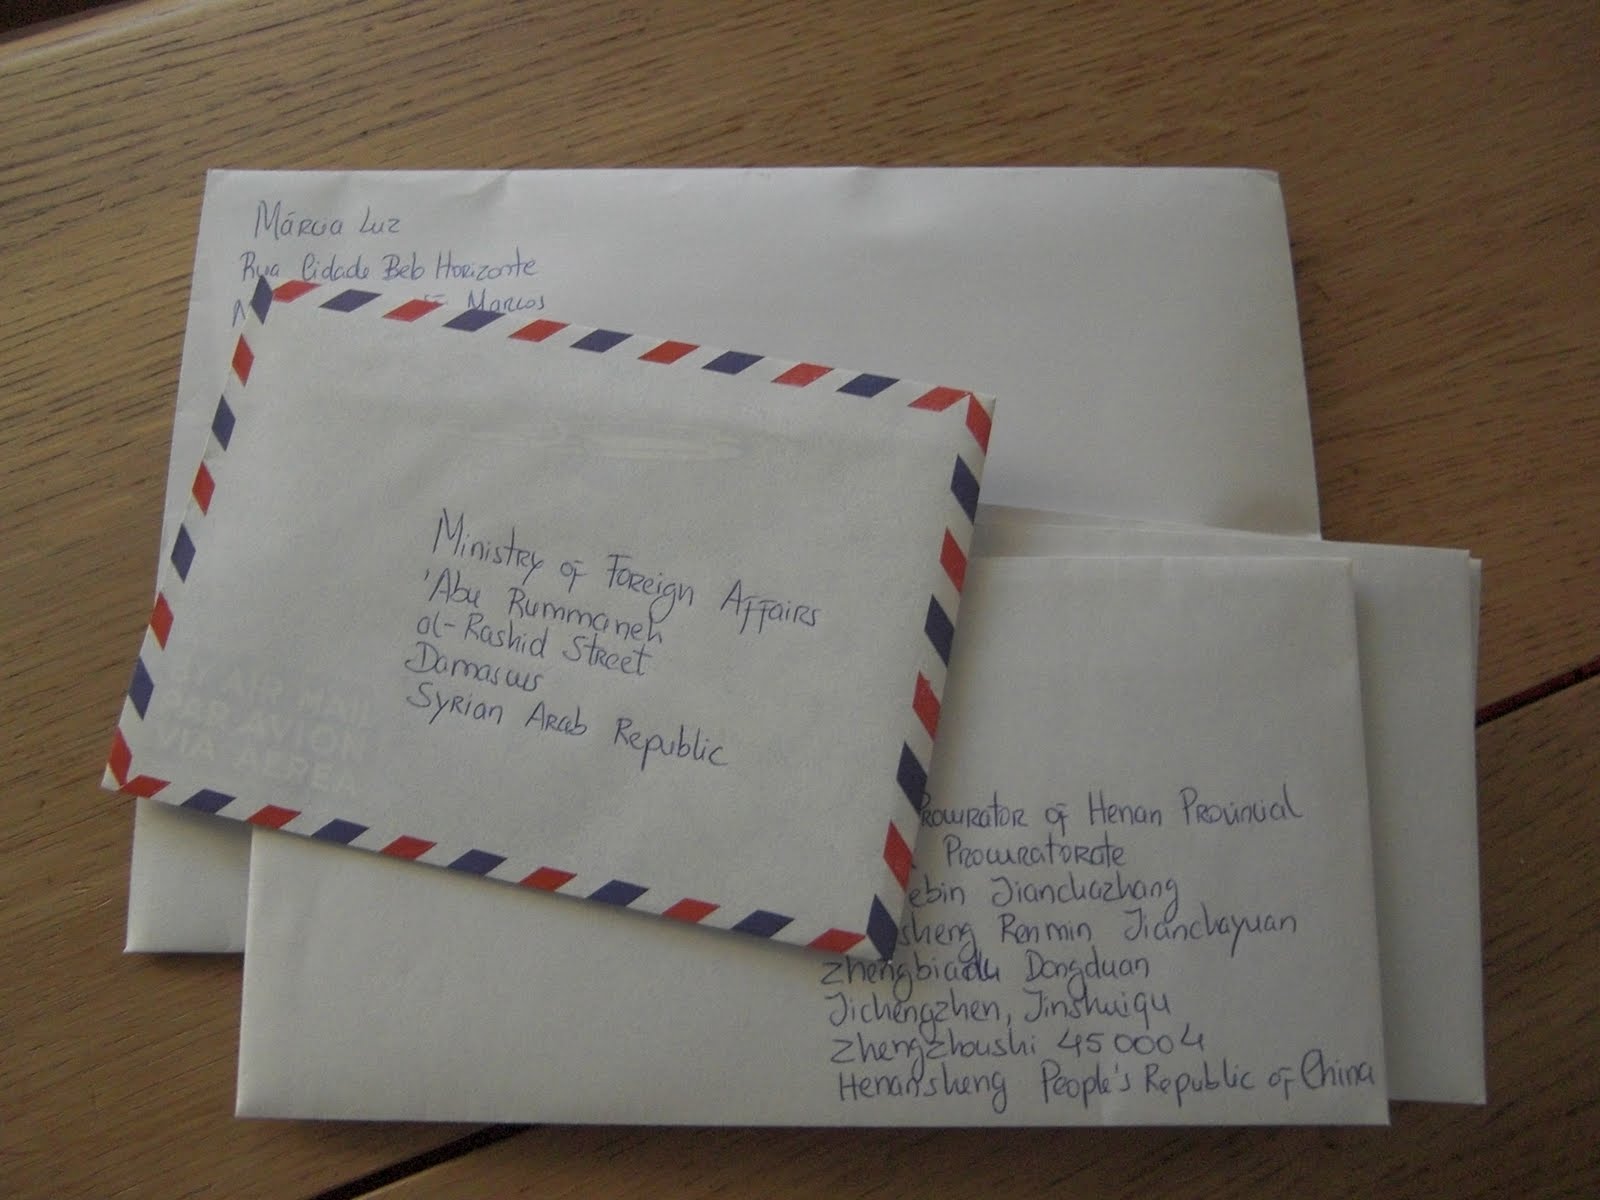 Márcia Luz
Rua Cidade Belo Horizonte
Marcos
Ministry of Foreign Affairs
'Abu Rummaneh
al-Rashid Street
Damascus
Syrian Arab Republic
BY AIR MAIL
PAR AVION
VIA AEREA
of Henan Provincial
Procuratorate
Jianchazhang
Renmin Jianchayuan
Dongduan
Jichengzhen, Jinshuiqu
Zhengzhoushi 450004
Henansheng People's Republic of China